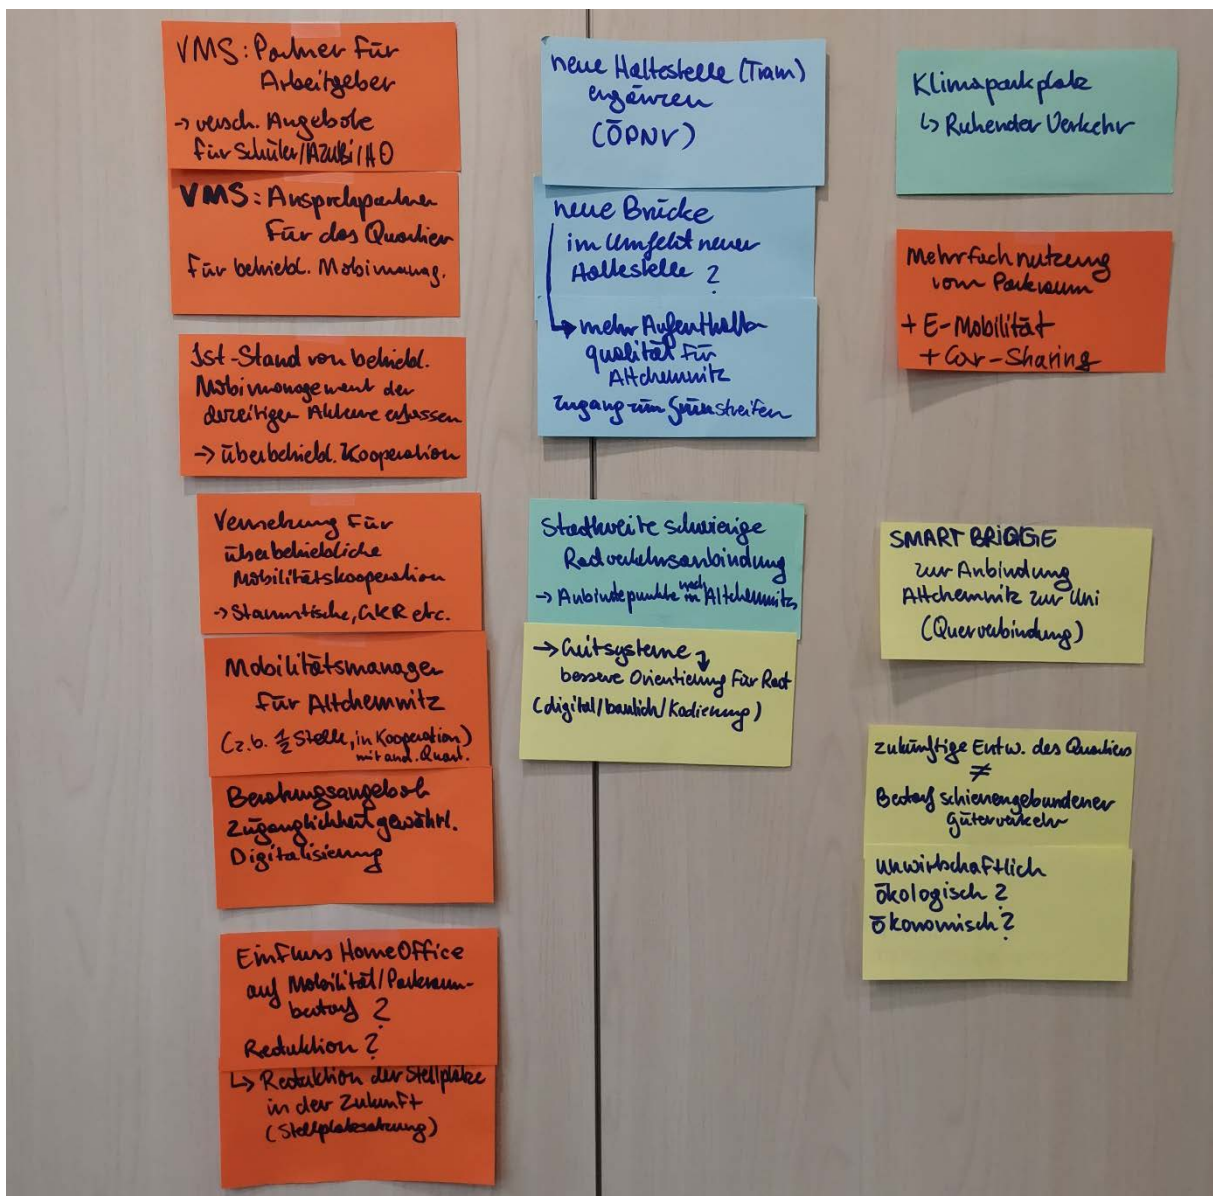 VMS: Partner für
Arbeitgeber
→ versch. Angebote
für Schüler/AZUBI/
VMS: Ansprechpartner
für das Quartier
für betriebl. Mobimanag.
Ist-Stand von betriebl.
Mobimanagement der
derzeitigen Akteure erfassen
→ überbetriebl. Kooperation
Vernetzung für
überbetriebliche
Mobilitätskooperation
→ Stammtische, etc.
Mobilitätsmanager
für Altchemnitz
(z.b. 1/2 Stelle, in Kooperation)
mit and. Quart.
Beratungsangebote
Zugänglichkeit gewährl.
Digitalisierung
Einfluss HomeOffice
auf Mobilität/Parkraum-
bedarf ?
Reduktion ?
↳ Reduktion der Stellplätze
in der Zukunft
(Stellplatzsatzung)
neue Haltestelle (Tram)
ergänzen
(ÖPNV)
neue Brücke
im Umfeld neuer
Haltestelle ?
→ mehr Aufenthalts-
qualität für
Altchemnitz
Zugang zum Grünstreifen
Stadtweite schwierige
Radverkehrsanbindung
→ Anbindepunkte nach in Altchemnitz
→ Leitsysteme
bessere Orientierung für Rad
(digital/baulich/Kodierung)
Klimaparkplatz
↳ Ruhender Verkehr
Mehrfachnutzung
vom Parkraum
+ E-Mobilität
+ Car-Sharing
SMART BRIDGE
zur Anbindung
Altchemnitz zur Uni
(Querverbindung)
zukünftige Entw. des Quartiers
≠
Bedarf schienengebundener
Güterverkehr
unwirtschaftlich
ökologisch ?
ökonomisch ?